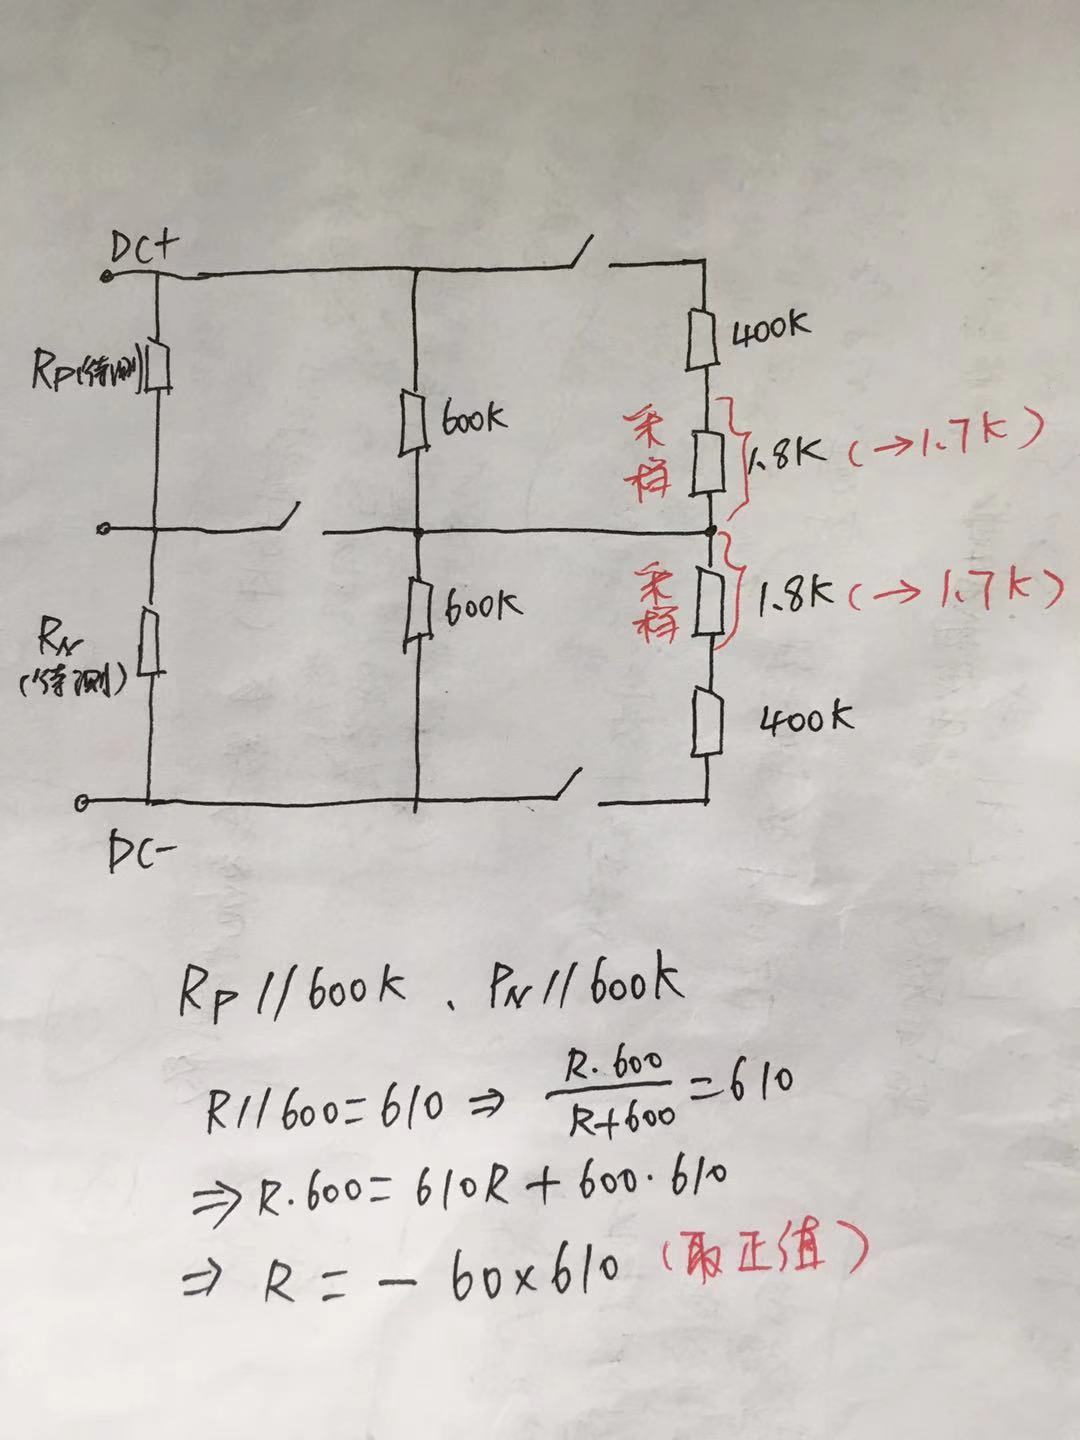 DC+
400K
RP(待测)
600K
采样
1.8K (→1.7K)
600K
采样
1.8K (→1.7K)
RN
(待测)
400K
DC-
RP//600K、PN//600K
R//600=610 ⇒ R·600/R+600=610
⇒R·600=610R+600·610
⇒ R = - 60×610 (取正值)